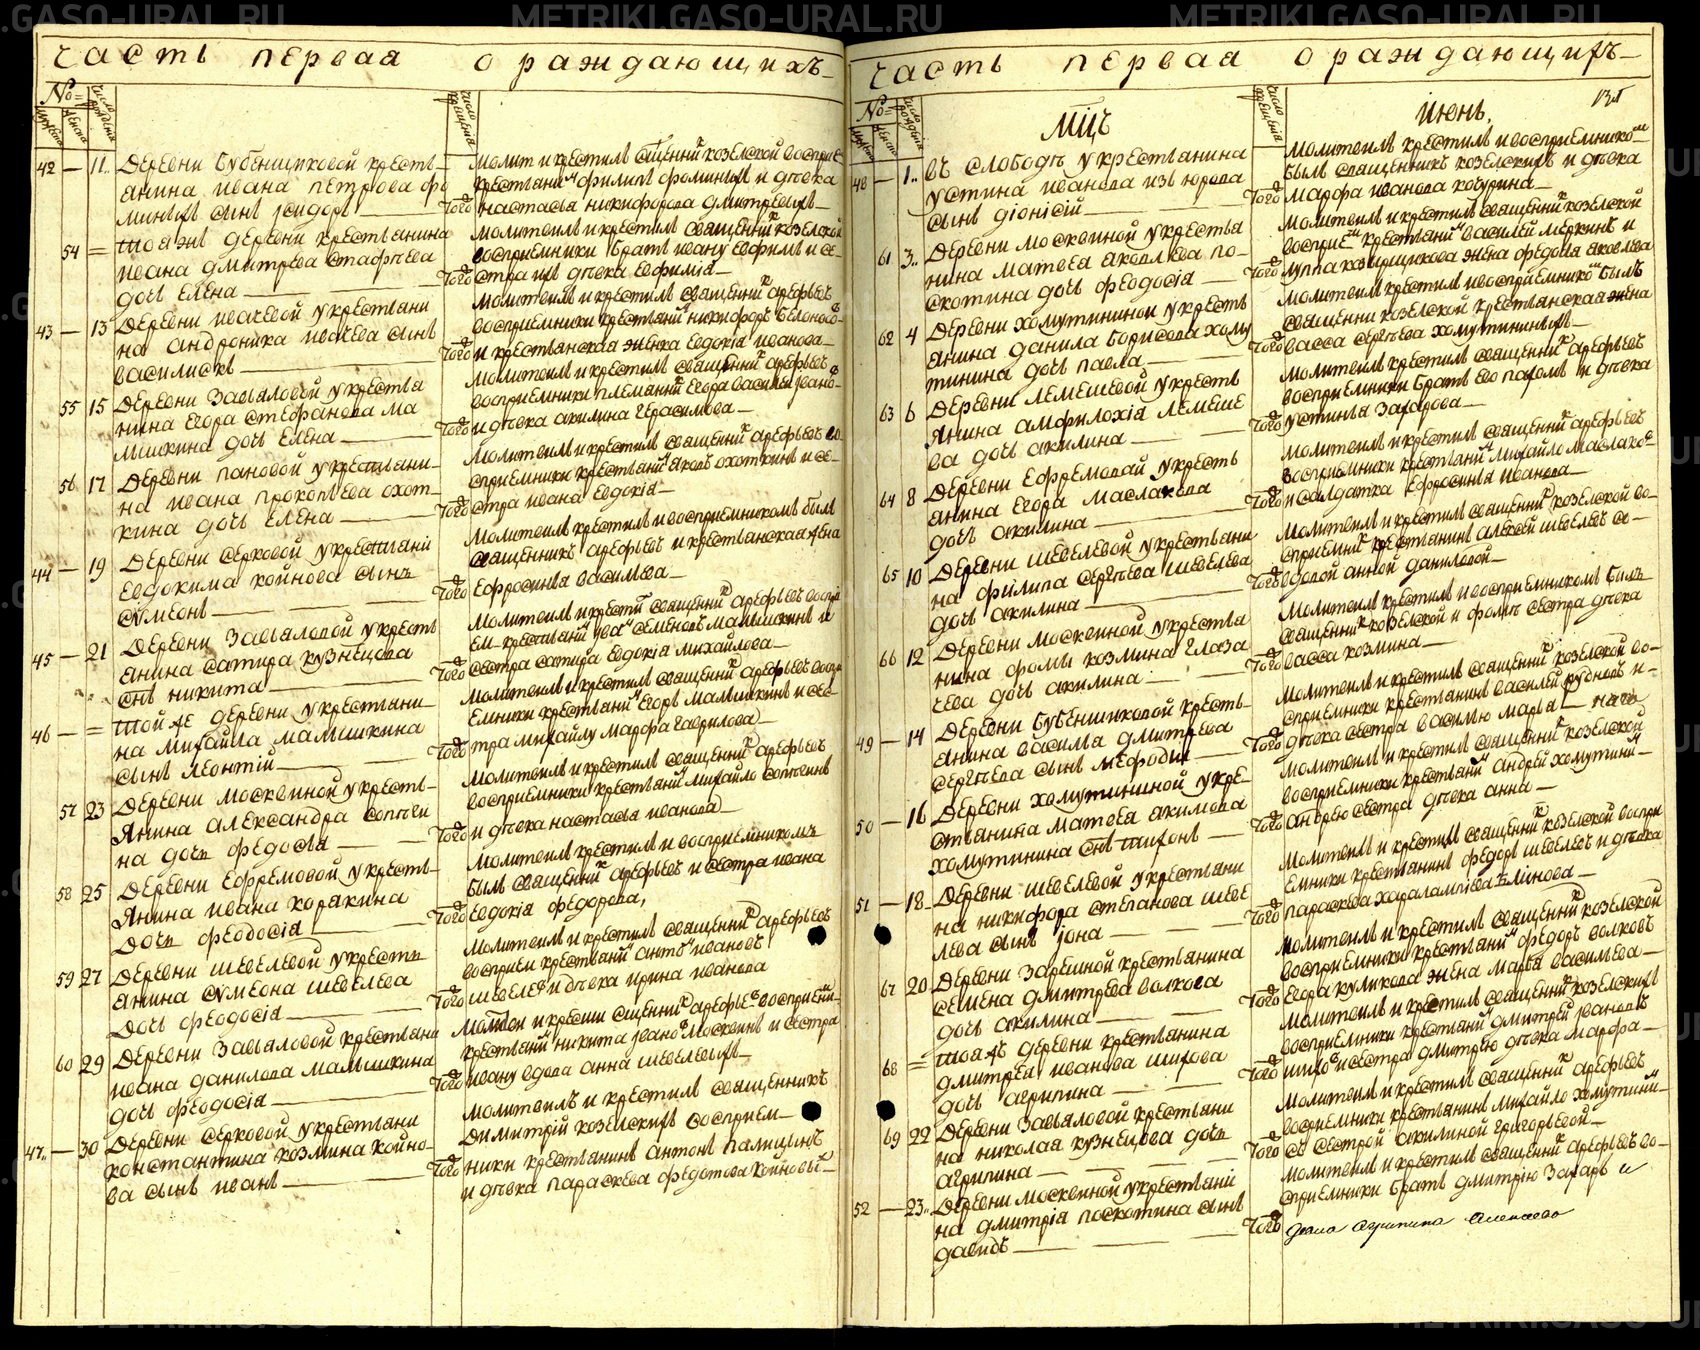 METRIKI.GASO-URAL.RU
часть первая о раждающихъ
№
мужеска
женска
число рождения
число крещения
42 — 11 Деревни Бубенщиковой кресть-
янина ивана петрова фо
миныхъ сынъ исидоръ
молит и крестилъ священникъ козелской восприем
крестьянинъ филипъ фоминыхъ и дѣвка
того настасья никифорова дмитревыхъ
54 = тоя же деревни крестьянина
ивана дмитрева
дочь елена
молитвилъ и крестилъ священникъ козелской
восприемники братъ ивану евфимъ и се-
того стра ихъ дѣвка евфимія
43 — 13 Деревни ивачевой у крестьяни
на андроника ивачева сынъ
василискъ
молитвилъ и крестилъ священникъ арефьевъ
восприемники крестьянинъ никифоръ
того и крестьянская женка евдокія иванова
55 15 Деревни Завьяловой у крестья
нина егора стефанова ма
мшкина дочь елена
молитвилъ и крестилъ священникъ арефьевъ
восприемники племянникъ егора василей ивано-
того и дѣвка акилина герасимова
56 17 Деревни пановой у крестьяни-
на ивана прокопьева охот-
кина дочь елена
молитвилъ и крестилъ священникъ арефьевъ во-
сприемники крестьянинъ яковъ охоткинъ и се-
того стра ивана евдокія
44 — 19 Деревни серковой у крестьяни
евдокима койнова сынъ
сумеонъ
молитвилъ крестилъ и восприемникомъ былъ
священникъ арефьевъ и крестьянская жена
того ефросинья васильева
45 — 21 Деревни Завьяловой у кресть
янина сатира кузнецова
снъ никита
молитвилъ и крестилъ священникъ арефьевъ воспри
ем крестьянинъ семеновъ мамшкинъ и
того сестра сатира евдокія михайлова
46 — = той же деревни у крестьяни
на михайла мамшкина
сынъ леонтій
молитвилъ и крестилъ священникъ арефьевъ воспри
емники крестьянинъ егоръ мамшкинъ и сес-
того тра михайлу марфа гаврилова
57 23 Деревни москвиной у кресть-
янина александра
на дочь федосья
молитвилъ и крестилъ священникъ арефьевъ
восприемники крестьянинъ михайло
того и дѣвка настасья иванова
58 25 Деревни Ефремовой у кресть-
янина ивана корякина
дочь феодосія
молитвилъ крестилъ и восприемникомъ
былъ священникъ арефьевъ и сестра ивана
того евдокія федорова,
59 27 Деревни шевелевой у кресть
янина сумеона шевелева
дочь феодосія
молитвилъ и крестилъ священникъ арефьевъ
восприем крестьянинъ ивановъ
того шевелевъ и дѣвка ирина иванова
60 29 Деревни Завьяловой крестьяни
ивана данилова мамшкина
дочь феодосія
молитвен и крести священникъ арефьевъ восприем-
крестьянинъ никита ивановъ москвинъ и сестра
того ивану вдова анна шевелевыхъ
47 — 30 Деревни серковой у крестьяни
константина козмина койно-
ва сынъ иванъ
молитвилъ и крестилъ священникъ
димитрій козелскихъ восприем-
того ники крестьянинъ антонъ палицынъ
и дѣвка параскева федотова койновы
часть первая о раждающихъ
№
мужеска
женска
число рождения
Мцъ
число крещения
июнь.
48 — 1 въ слободѣ у крестьянина
устина иванова изъюрова
сынъ діонісій
молитвилъ крестилъ и восприемникомъ
былъ священникъ козелскихъ и дѣвка
того марфа иванова кочурина
61 3 Деревни москвиной у крестья
нина матвея яковлева по-
скотина дочь феодосія
молитвилъ и крестилъ священникъ козелской
восприемникъ крестьянинъ василей меркинъ и
того луппа козырщикова жена федосья яковлева
62 4 Деревни хомутининой у кресть
янина данила борисова хому
тинина дочь павла
молитвилъ крестилъ и восприемникомъ былъ
священникъ козелской крестьянская жена
того васса сергѣева хомутининыхъ
63 6 Деревни лемешевой у кресть
янина амфилохія лемеше
ва дочь акилина
молитвилъ крестилъ священникъ арефьевъ
восприемники братъ ево пахомъ и дѣвка
того устинья захарова
64 8 Деревни Ефремовай у кресть
янина егора маслакова
дочь акилина
молитвилъ и крестилъ священникъ арефьевъ
восприемники крестьянинъ михайло маслаковъ
того и салдатка ефросинья иванова
65 10 Деревни шевелевой у крестьяни
на филипа сергѣева шевелева
дочь акилина
молитвилъ и крестилъ священникъ козелской во-
сприемникъ крестьянинъ алексей шевелевъ со-
того вдовой анной даниловой
66 12 Деревни москвиной у крестья
нина фомы козмина глаза
чева дочь акилина
молитвилъ крестилъ и восприемникомъ былъ
священникъ козелской и фомѣ сестра дѣвка
того васса козмина
49 — 14 Деревни бубенщиковой кресть-
янина василья дмитрева
сергѣева сынъ мефодій
молитвилъ и крестилъ священникъ козелской во-
сприемники крестьянинъ василей рудновъ и-
того дѣвка сестра василью марья
50 — 16 Деревни хомутининой у кре-
стьянина матвея акимова
хомутинина снъ тихонъ
молитвилъ и крестилъ священникъ козелской
восприемники крестьянинъ андрей хомутининъ
того андрею сестра дѣвка анна
51 — 18 Деревни шевелевой у крестьяни
на никифора степанова шеве
лева сынъ іона
молитвилъ и крестилъ священникъ козелской воспри
емники крестьянинъ федоръ шевелевъ и дѣвка
того параскева харалампіева блинова
67 20 Деревни зарешной крестьянина
семена дмитрева волкова
дочь акилина
молитвилъ и крестилъ священникъ козелской
восприемники крестьянинъ федоръ волковъ
того егора куликова жена марья васильева
68 = тоя жъ деревни крестьянина
дмитрея иванова шихова
дочь агрипина
молитвилъ и крестилъ священникъ козелскихъ
восприемники крестьянинъ дмитрей ивановъ
того шиховъ и сестра дмитрею дѣвка марфа
69 22 Деревни Завьяловой крестьяни
на николая кузнецова дочь
агрипина
молитвилъ и крестилъ священникъ арефьевъ
восприемники крестьянинъ михайло хомутинин-
того со сестрой акилиной григорьевой
52 — 23 Деревни москвиной у крестьяни
на дмитрія поскотина сынъ
давидъ
молитвилъ и крестилъ священникъ арефьевъ во-
сприемники братъ дмитрію захаръ и
того агрипина алексеева